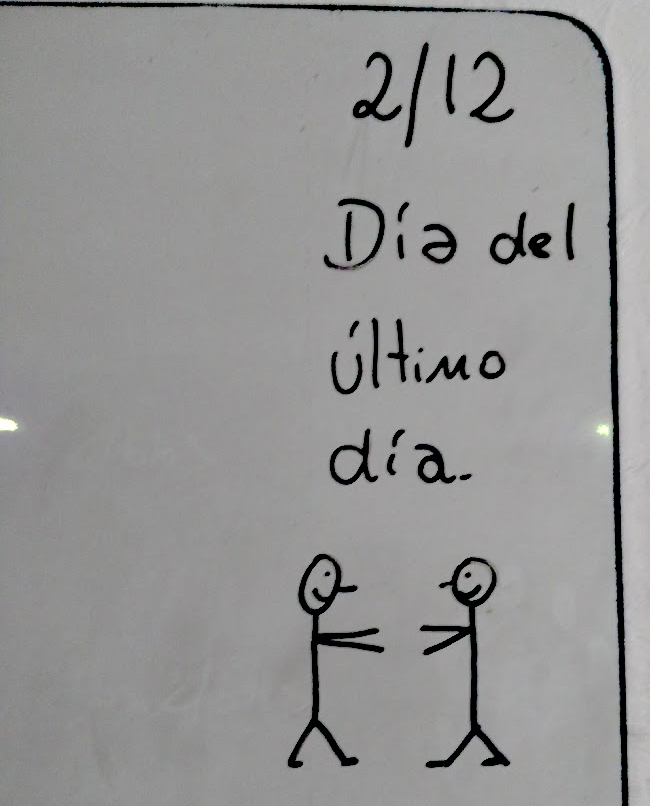 2/12
Día del
último
día.